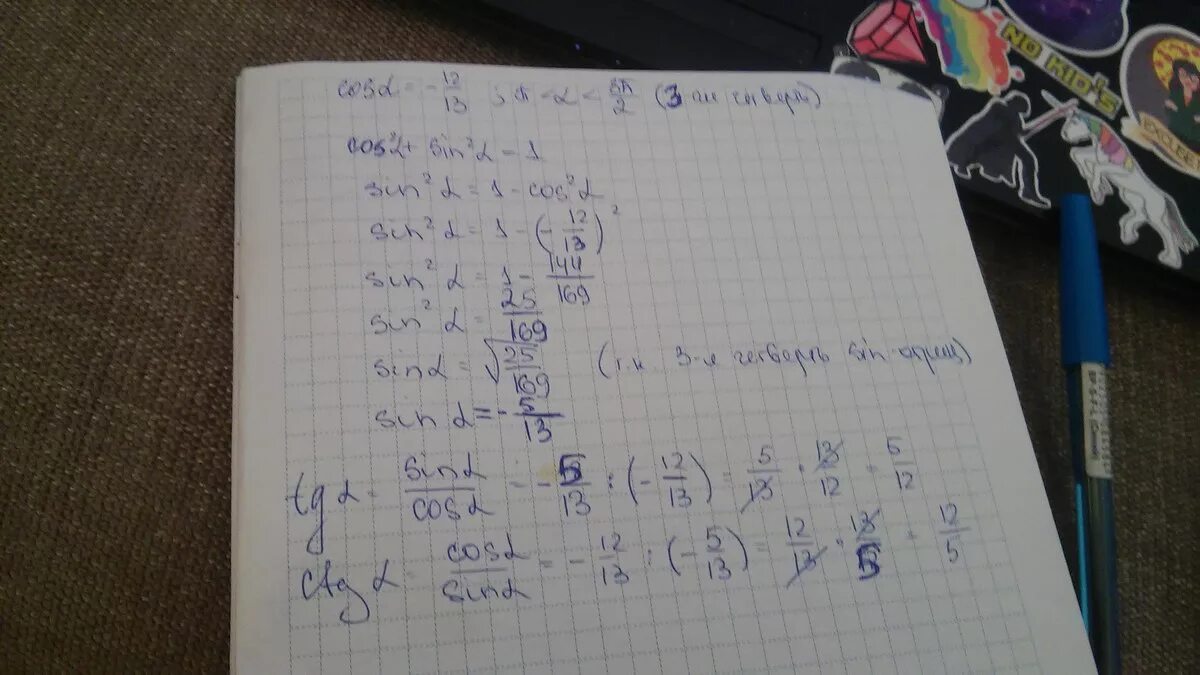 cosα = -12/13 ; π < α < 3π/2 (3-ая четверть)
cos²α + sin²α = 1
sin²α = 1 - cos²α
sin²α = 1 - (-12/13)²
sin²α = 1 - 144/169
sin²α = 25/169
sinα = √25/169 (т.к 3-я четверть sin отриц)
sin α = -5/13
tg α = sinα/cosα = -5/13 : (-12/13) = 5/13 · 13/12 = 5/12
ctg α = cosα/sinα = -12/13 : (-5/13) = 12/13 · 13/5 = 12/5
NO KID'S